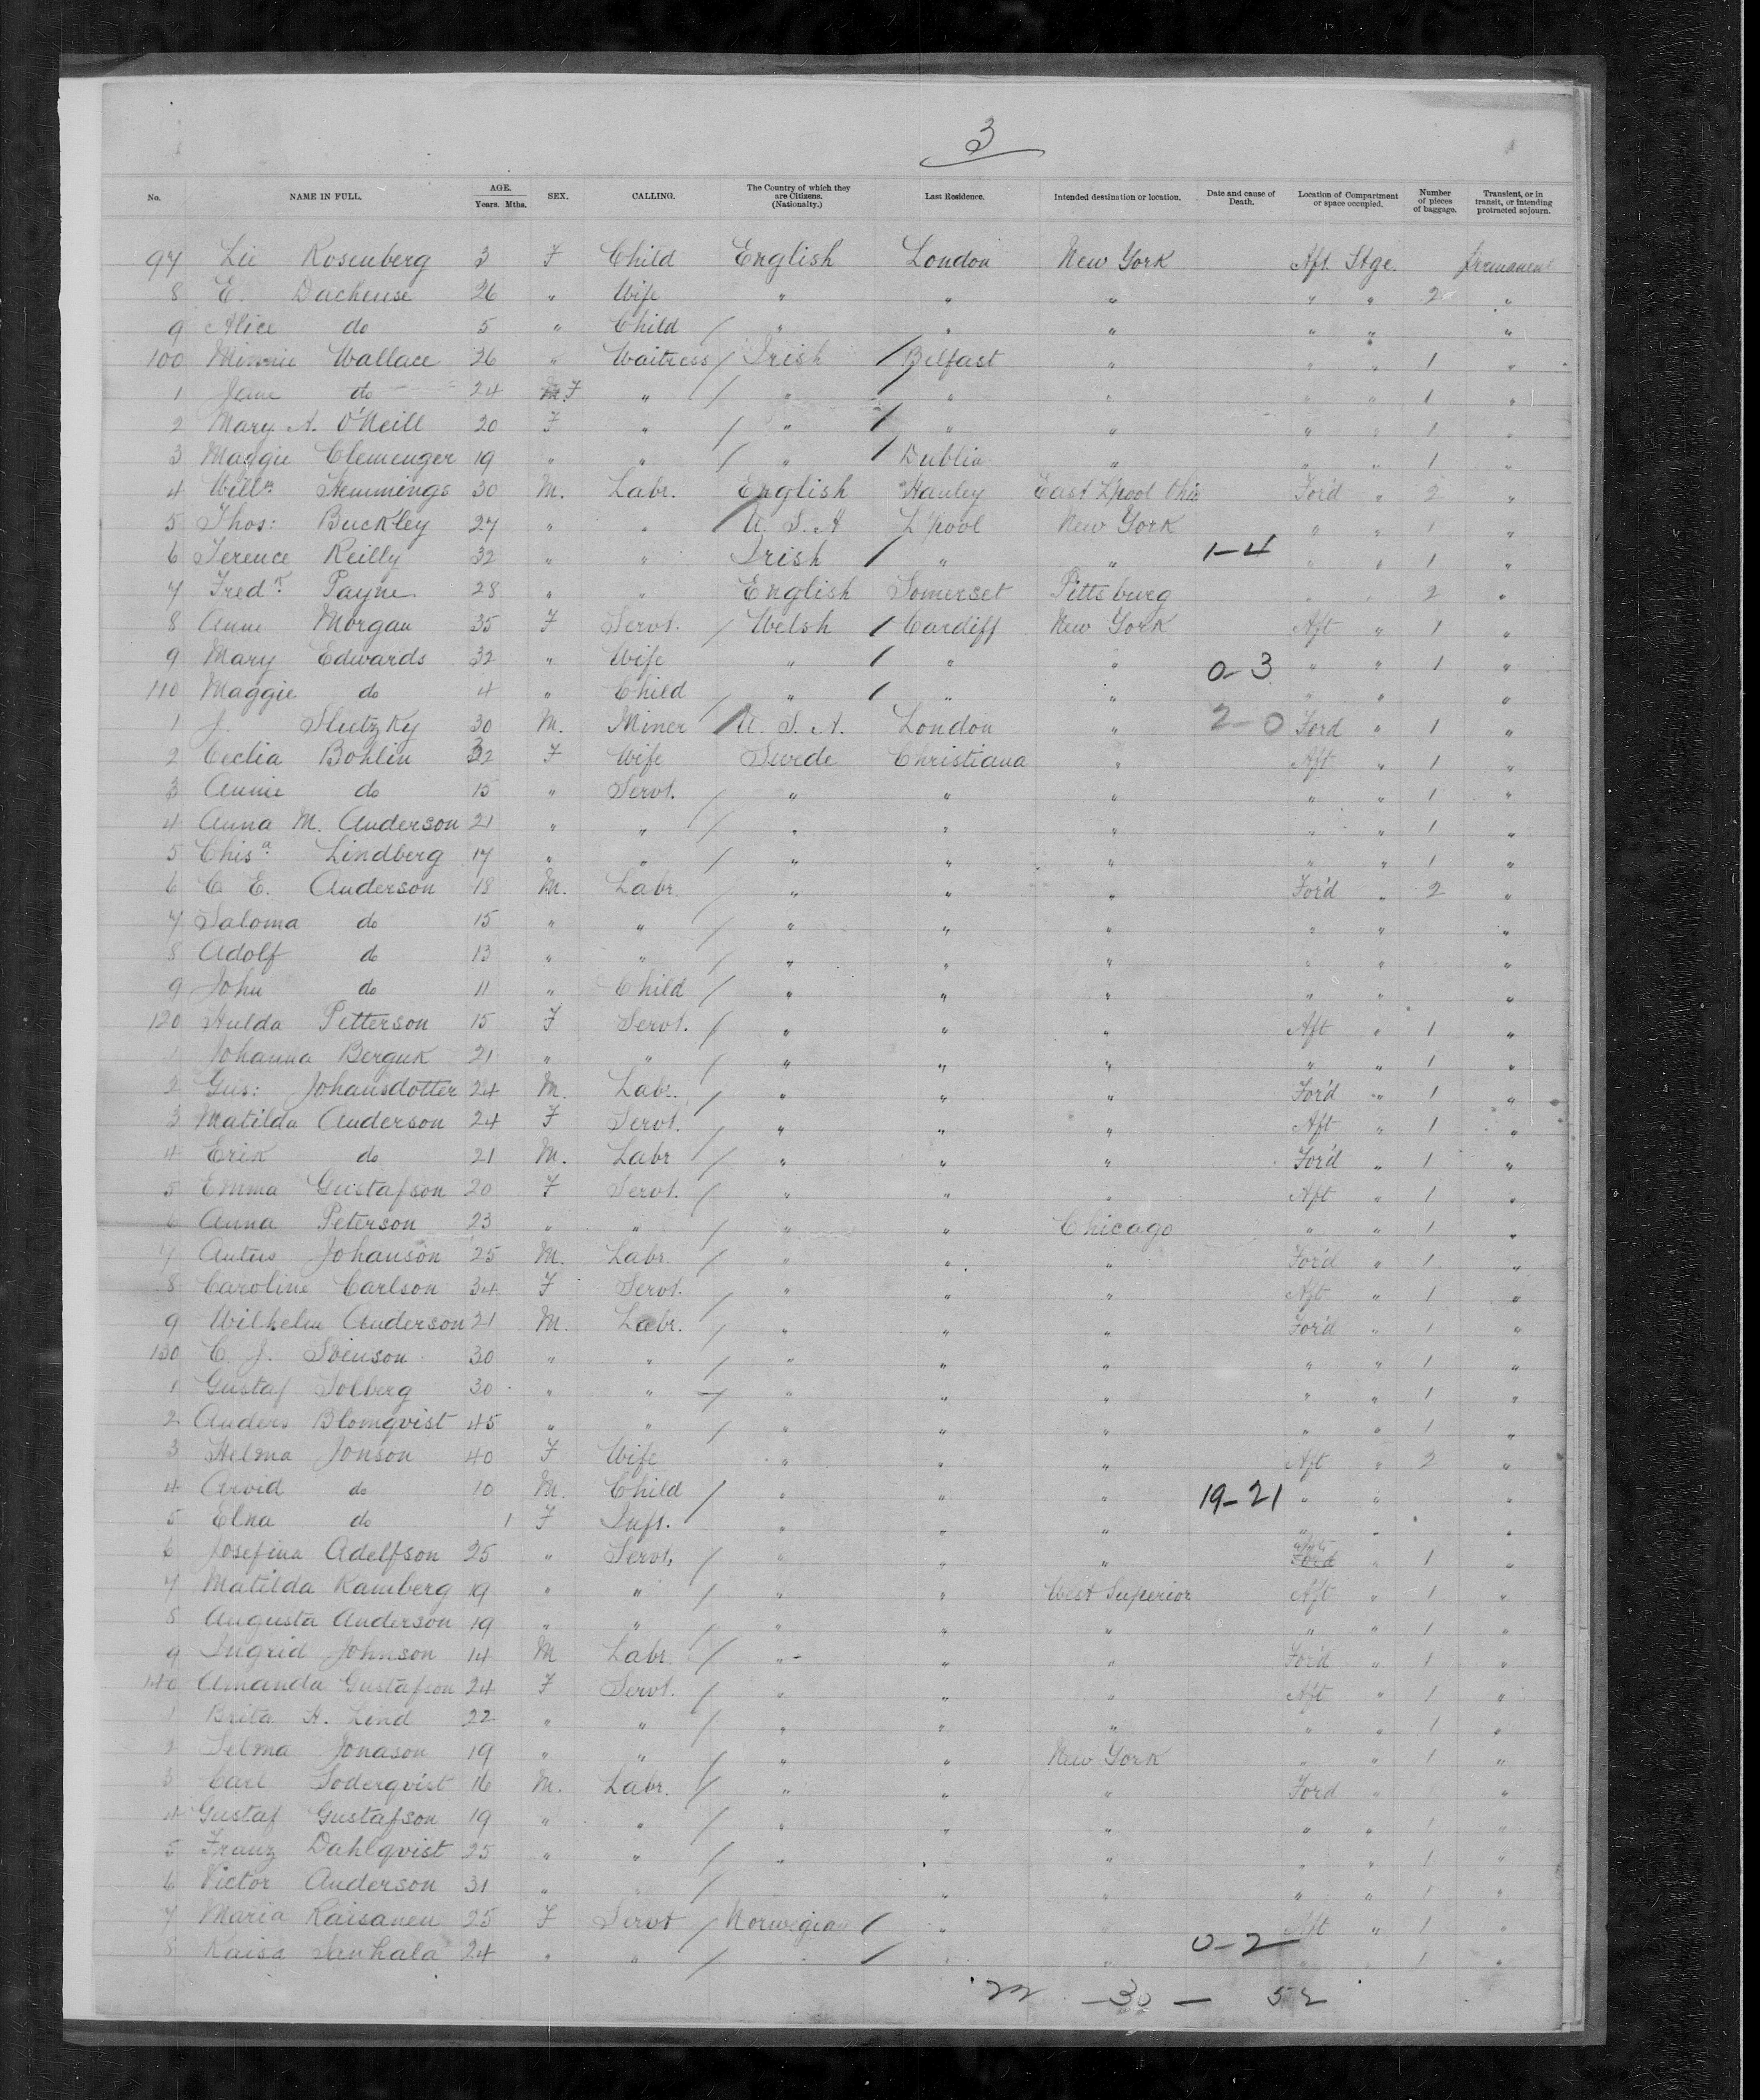 3
No. NAME IN FULL. AGE. Years. Mths. SEX. CALLING. The Country of which they are Citizens. (Nationality.) Last Residence. Intended destination or location. Date and cause of Death. Location of Compartment or space occupied. Number of pieces of baggage. Transient, or in transit, or intending protracted sojourn.
97 Lii Rosenberg 3 F Child English London New York Aft Stge. permanent
8 E. Dacheuse 26 " Wife " " " " " 2 "
9 Alice do 5 " Child / " " " " " "
100 Minnie Wallace 26 " Waitress / Irish / Belfast " " " 1 "
1 Jane do 24 M. F " / " / " " " " 1 "
2 Mary A. O'Neill 20 F " / " / " " " " 1 "
3 Maggie Clemenger 19 " " / " / Dublin " " " 1 "
4 Willm Hemmings 30 M. Labr. English Hanley East L'pool Ohio For'd " 2 "
5 Thos: Buckley 27 " " / U. S. A L'pool New York " " 1 "
6 Terence Reilly 32 " " Irish / " " 1-4 " " 1 "
7 Fredk Payne 28 " " English Somerset Pittsburg " " 2 "
8 Anne Morgan 35 F Servt. / Welsh / Cardiff New York Aft " 1 "
9 Mary Edwards 32 " Wife " / " " 0-3 " " 1 "
110 Maggie do 4 " Child / " / " " " " "
1 J. Slutzky 30 M. Miner / U. S. A. London " 2-0 Ford " 1 "
2 Ceclia Bohlin 32 F Wife Swede Christiana " Aft " 1 "
3 Annie do 15 " Servt. / " " " " " 1 "
4 Anna M. Anderson 21 " " / " " " " " 1 "
5 Chisa Lindberg 17 " " / " " " " " 1 "
6 C. E. Anderson 18 M. Labr. " " " For'd " 2 "
7 Saloma do 15 " " / " " " " " "
8 Adolf do 13 " " / " " " " " "
9 John do 11 " Child / " " " " " "
120 Hulda Petterson 15 F Servt. / " " " Aft " 1 "
1 Johanna Berguk 21 " " / " " " " " 1 "
2 Gus: Johansdotter 24 M. Labr. / " " " For'd " 1 "
3 Matilda Anderson 24 F Servt. / " " " Aft " 1 "
4 Erik do 21 M. Labr / " " " For'd " 1 "
5 Emma Gustafson 20 F Servt. / " " " Aft " 1 "
6 Anna Peterson 23 " " / " " Chicago " " 1 "
7 Antus Johanson 25 M. Labr. / " " " For'd " 1 "
8 Caroline Carlson 34 F Servt. / " " " Aft " 1 "
9 Wilhelm Anderson 21 M. Labr. / " " " For'd " 1 "
130 C. J. Svenson 30 " " / " " " " " 1 "
1 Gustaf Solberg 30 " " / " " " " " 1 "
2 Anders Blomqvist 45 " " / " " " " " 1 "
3 Helma Jonson 40 F Wife " " " Aft " 2 "
4 Arvid do 10 M. Child / " " " 19-21 " " "
5 Elna do 1 F Inft. " " " " " "
6 Josefina Adelfson 25 " Servt, / " " " Aft Ford " 1 "
7 Matilda Ramberg 19 " " / " " West Superior Aft " 1 "
8 Augusta Anderson 19 " " / " " " " " 1 "
9 Ingrid Johnson 14 M Labr. / " " " For'd " 1 "
140 Amanda Gustafson 24 F Servt. / " " " Aft " 1 "
1 Brita A. Lind 22 " " / " " " " " 1 "
2 Selma Jonason 19 " " / " " New York " " 1 "
3 Carl Soderqvist 16 M. Labr. / " " " Ford " 1 "
4 Gustaf Gustafson 19 " " / " " " " " 1 "
5 Franz Dahlqvist 25 " " / " " " " " 1 "
6 Victor Anderson 31 " " / " " " " " 1 "
7 Maria Raisanen 25 F Servt / Norwegian / " " Aft " 1 "
8 Kaisa Sanhala 24 " " / " / " " 0-2 " " 1 "
22 - 30 - 52